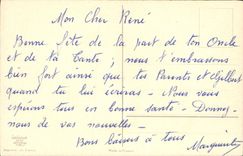 Mon Cher René
Bonne fête de la part de ton Oncle
et de ta Tante ; nous t'embrassons
bien fort ainsi que tes Parents et Gilbert
quand tu lui écriras - Nous vous
espérons tous en bonne santé - Donnez
nous de vos nouvelles -
Bons baisers à tous
Marguerite